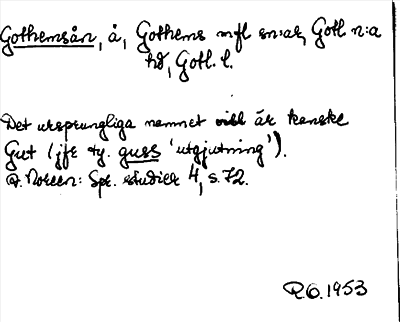 Gothemsån, å, Gothems m fl sn:ar, Gotl. n:a
hd, Gotl. l.
Det ursprungliga namnet är kanske
Gut (jfr ty. guss 'utgjutning').
A. Noreen: Spr. studier 4, s. 72.
R.O. 1953